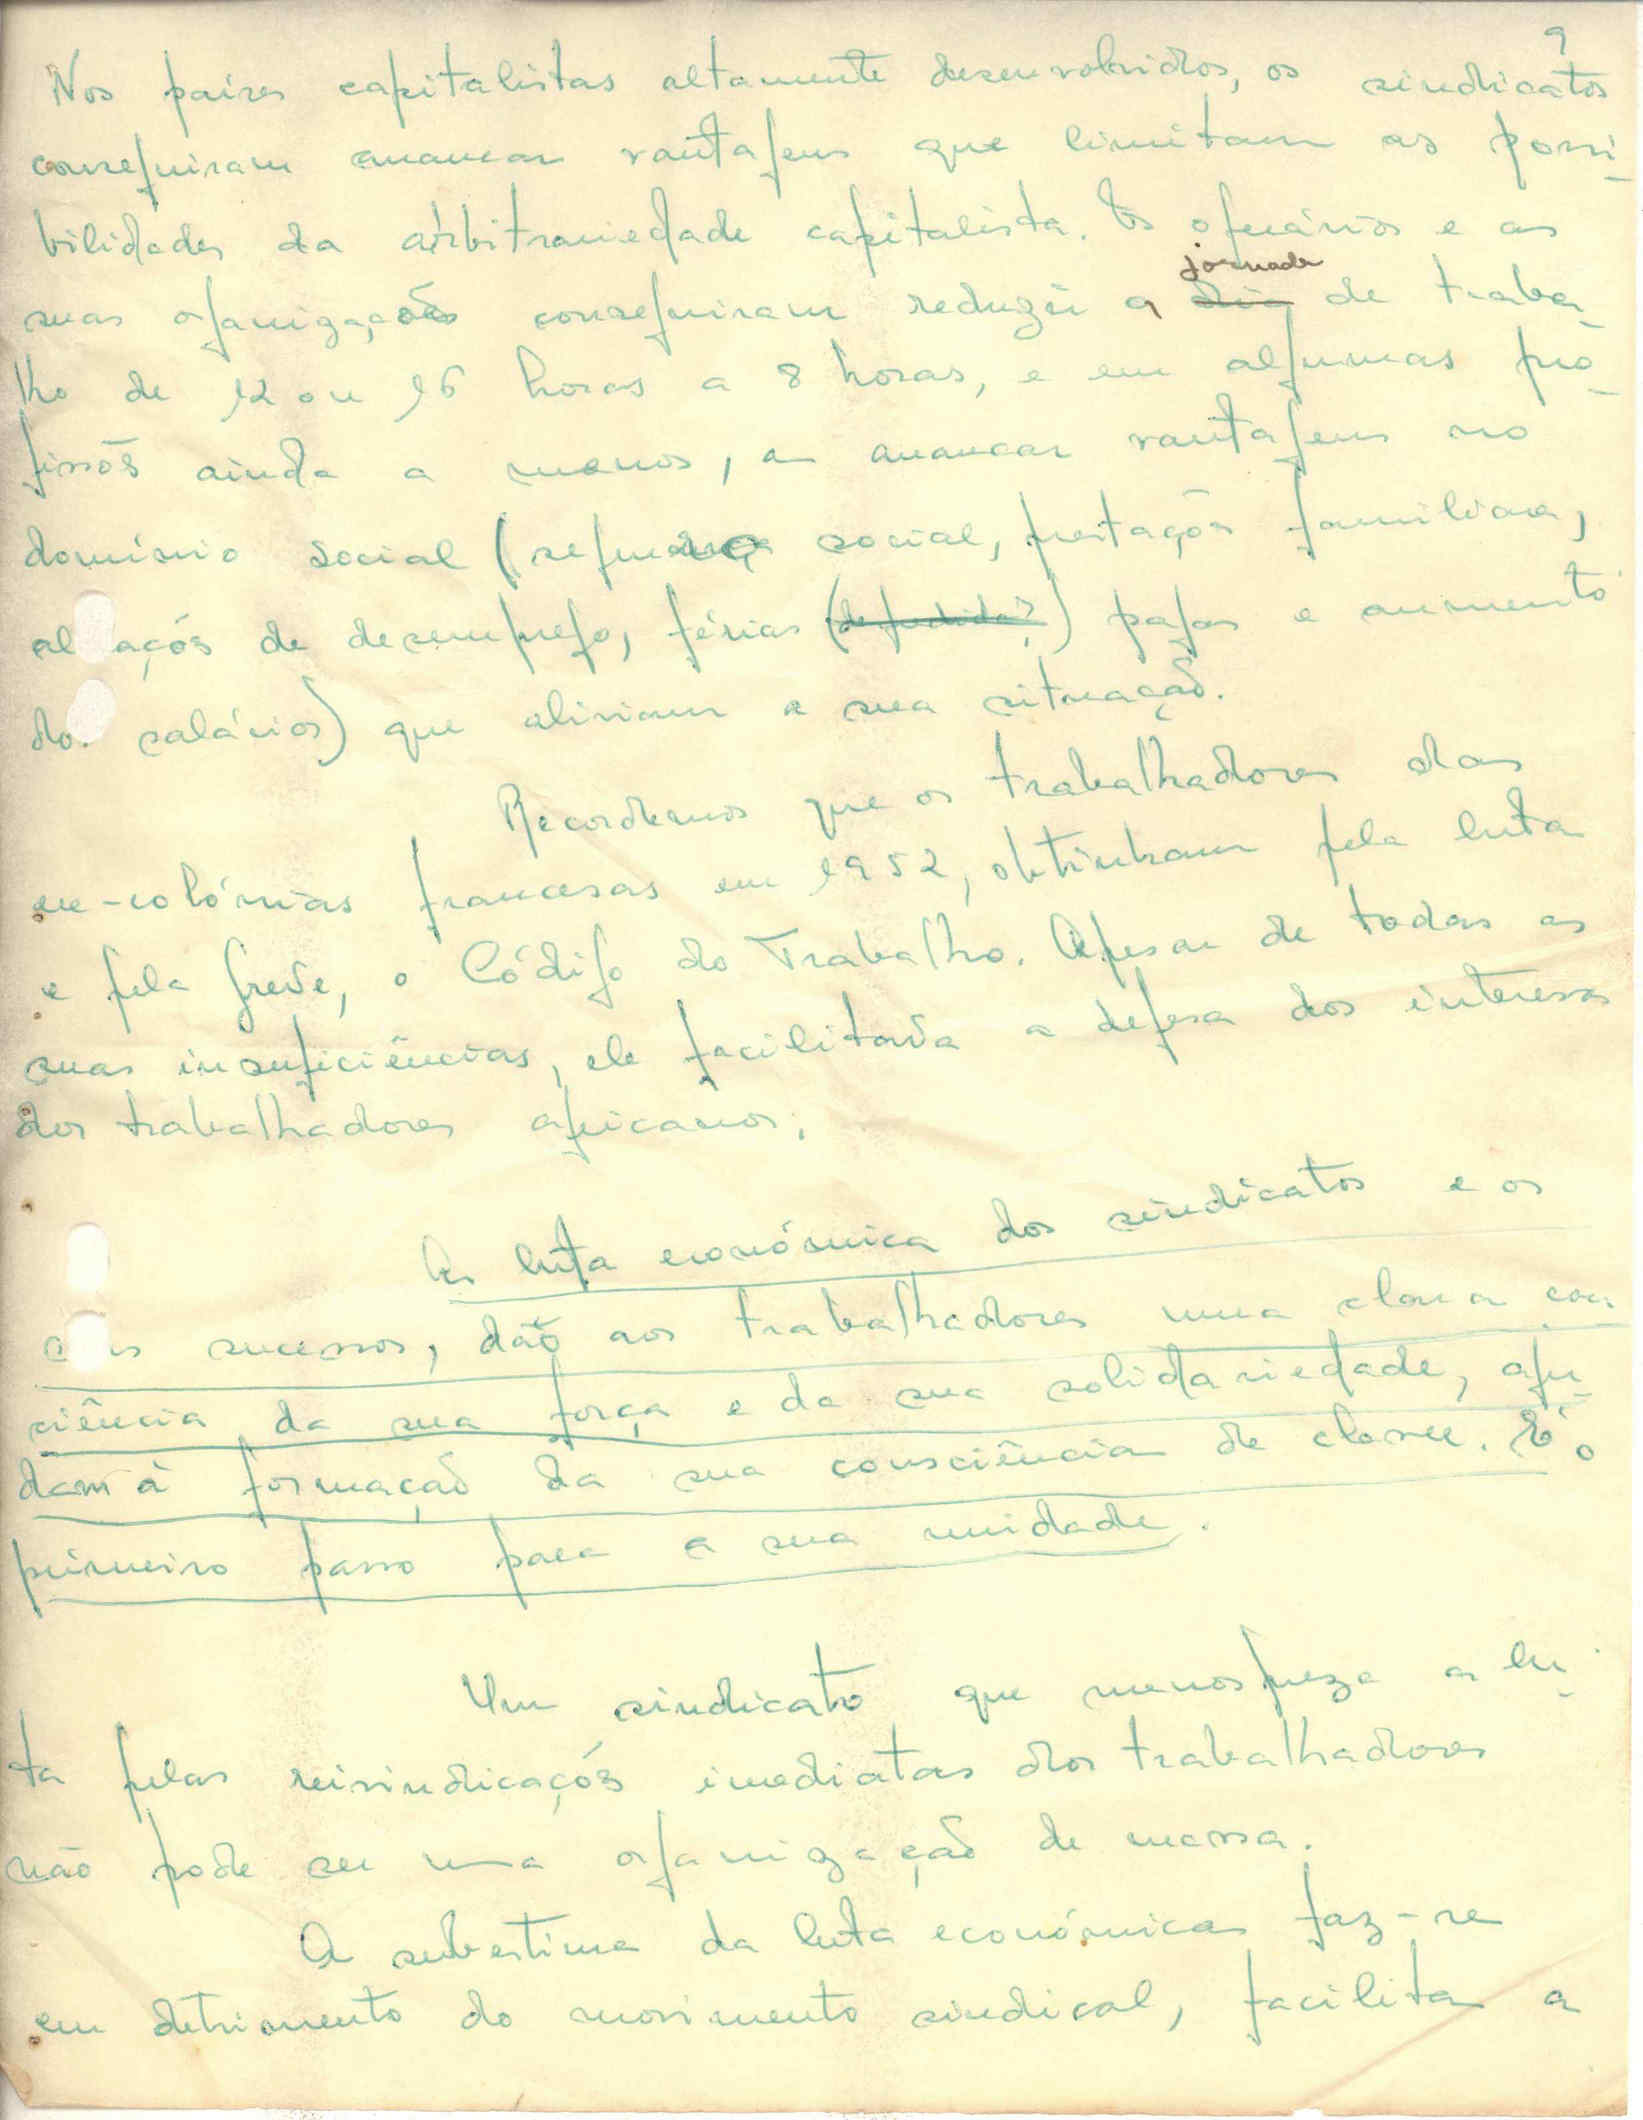 9
Nos países capitalistas altamente desenvolvidos, os sindicatos
conseguiram arrancar vantagens que limitam as possi-
bilidades da arbitrariedade capitalista. Os operários e as
suas organizações conseguiram reduzir a jornada de traba-
lho de 12 ou 16 horas a 8 horas, e em algumas pro-
fissões ainda a menos, a arrancar vantagens no
domínio social (segurança social, prestações familiares,
al ações de desemprego, férias ( ) pagas e aumento
do salários) que aliviam a sua situação.
Recordemos que os trabalhadores das
ex-colónias francesas em 1952, obtinham pela luta
e pela greve, o Código do Trabalho. Apesar de todas as
suas insuficiências, ele facilitava a defesa dos interesses
dos trabalhadores africanos.
A luta económica dos sindicatos e os
s sucessos, dão aos trabalhadores uma clara cons
ciência da sua força e da sua solidariedade, aju-
dam à formação da sua consciência de classe. É o
primeiro passo para a sua unidade.
Um sindicato que menospreza a lu-
ta pelas reivindicações imediatas dos trabalhadores
não pode ser uma organização de massa.
A subestima da luta económica faz-se
em detrimento do movimento sindical, facilita a